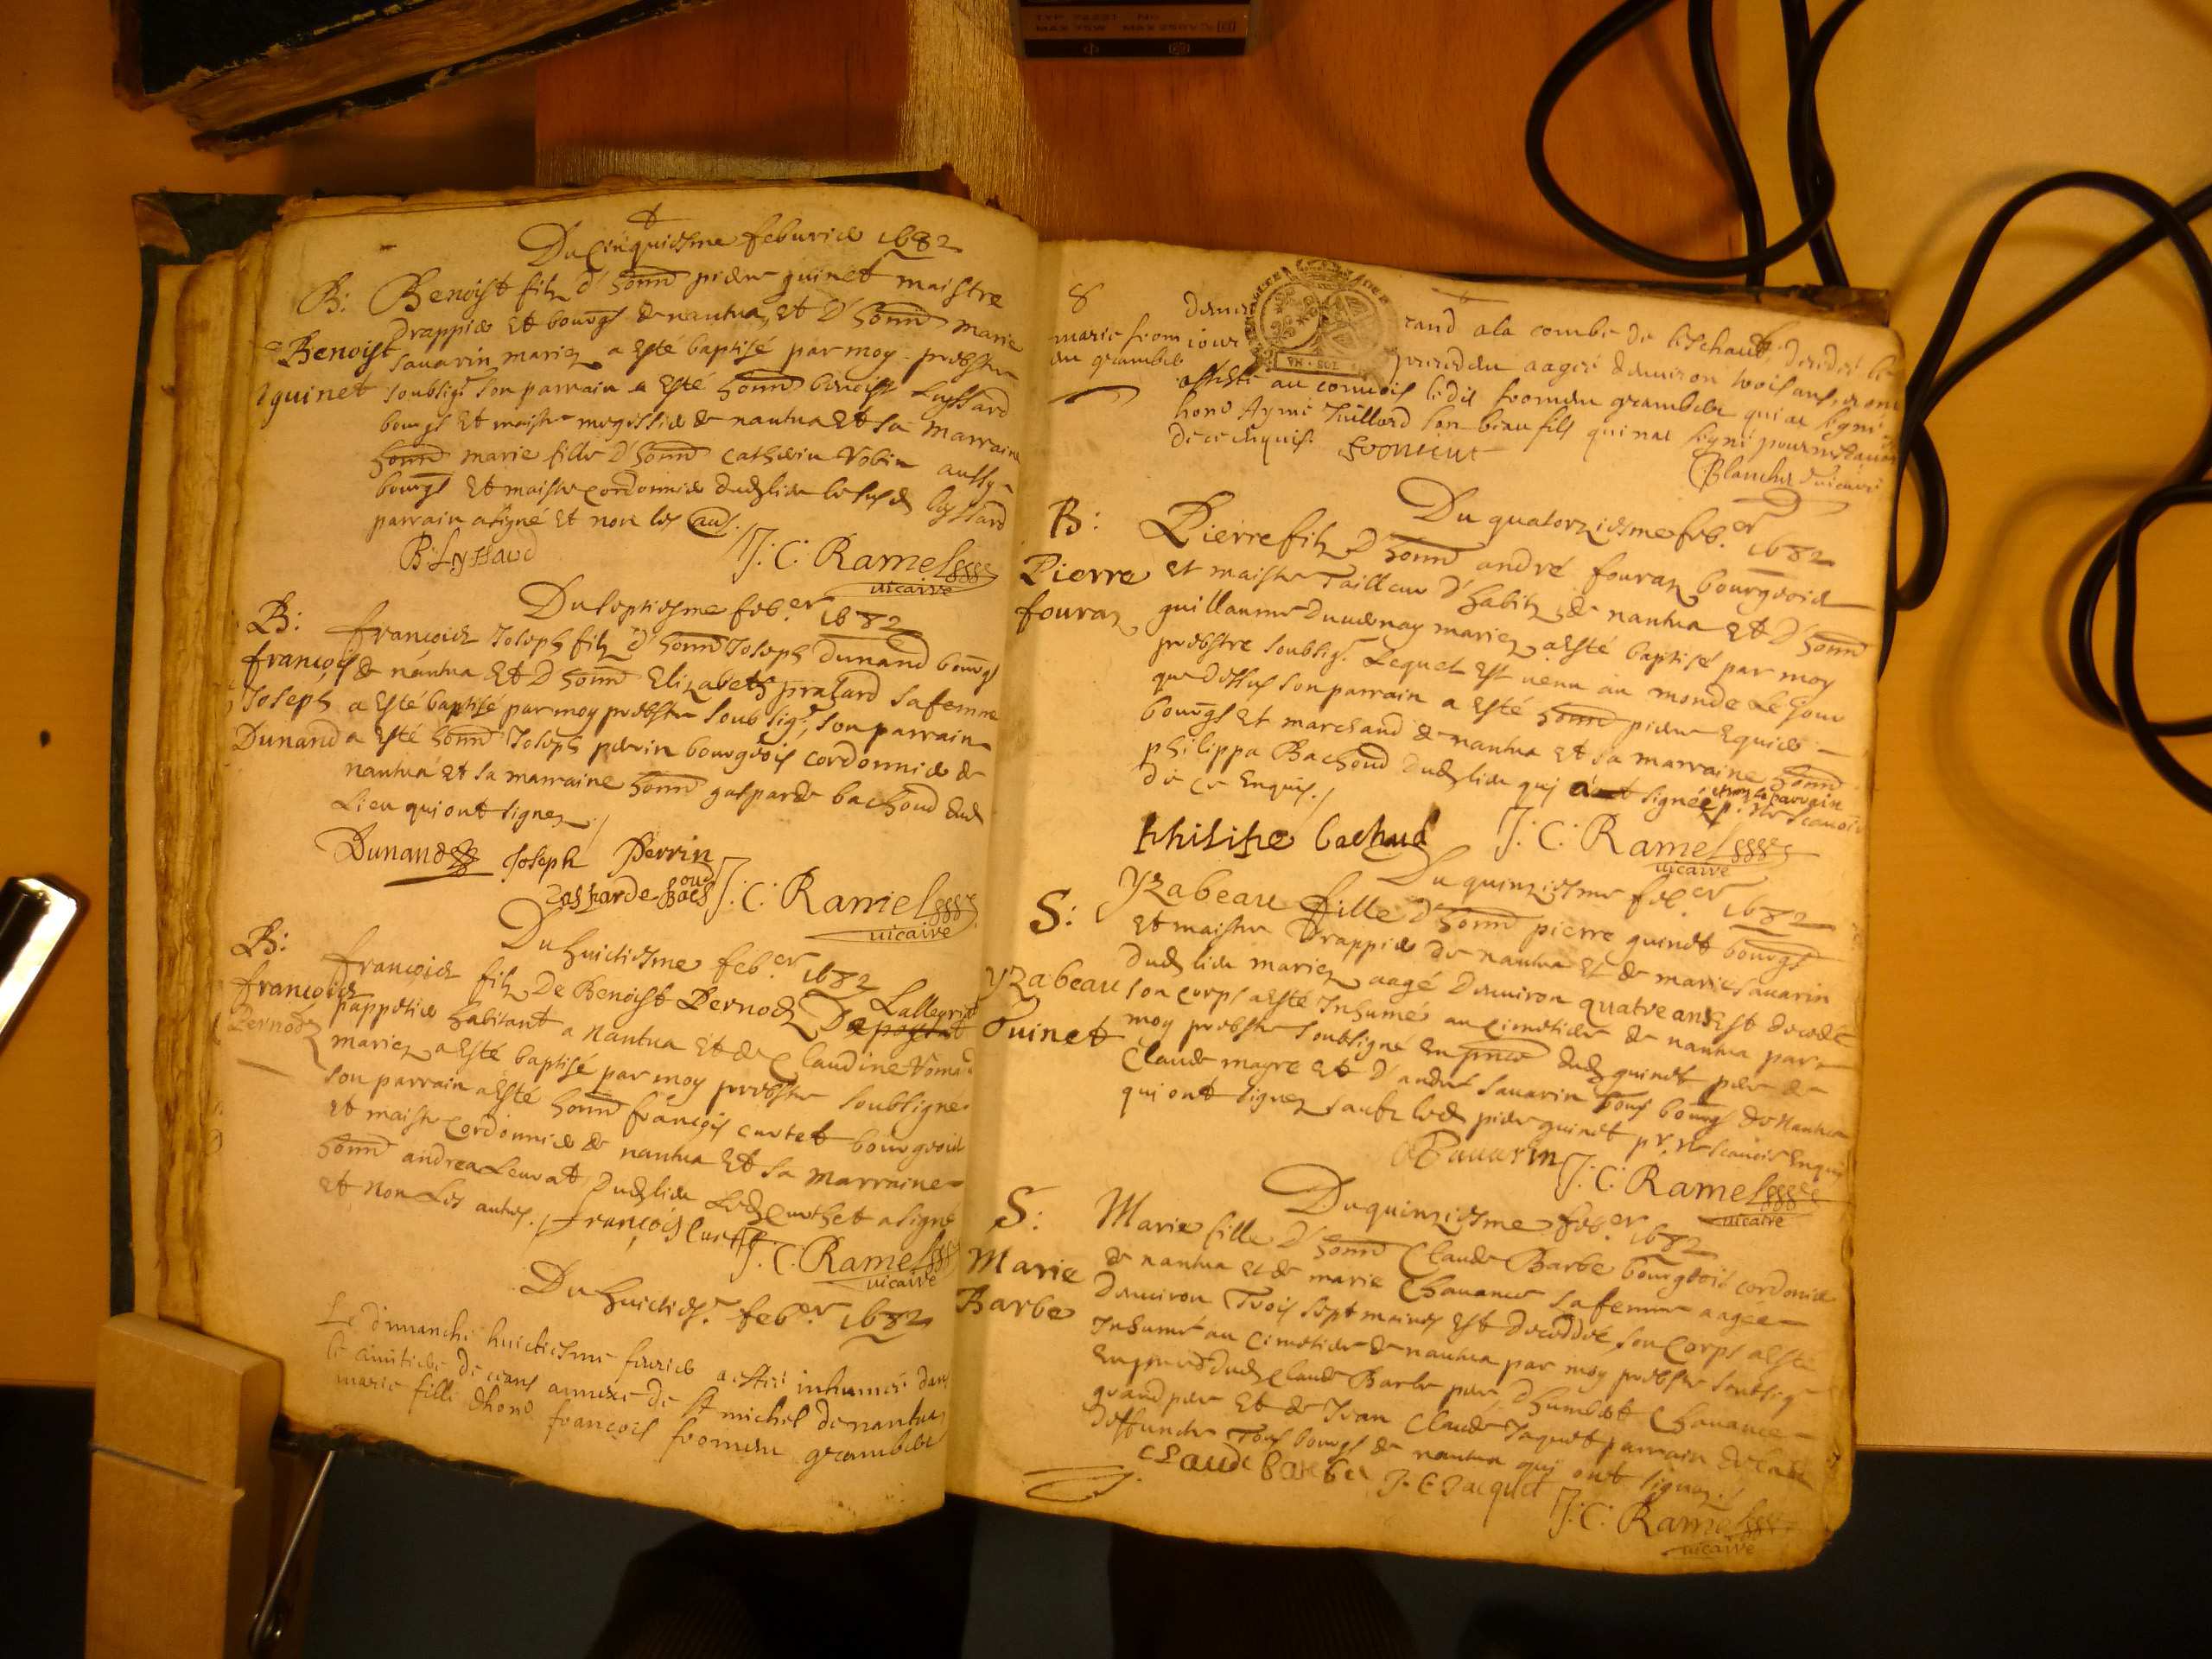 Du cinquiesme feburier 1682
B: Benoist filz d' honn pierre guinet maistre
drappier et bourgs de nantua, et d' honn marie
Benoist sauarin mariez a esté baptisé par moy prebstre
guinet soubsig. son parrain a esté honn benoist Lyssard
bourgs et maistre megissier de nantua et sa marraine
honn marie fille d' honn cathein Robin aussy
bourgs et maistre cordonnier dud lieu le susd lyssard
parrain a signé et non les aus.
B Lyssard J: C: Ramel
vicaire
Du septiesme feb.er 1682
B: françois Joseph filz d' honn Joseph Dunand bourgs
françois de nantua et d honn Elizabeth pralard sa femme
Joseph a esté baptisé par moy prebstre soubsig. son parrain
Dunand a esté honn Joseph perrin bourgeois cordonnier de
nantua et sa marraine honn gasparde bachoud dud
Lieu qui ont signez
Dunand Joseph Perrin
Gasparde Bachoud J: C: Ramel
vicaire
Du huictiesme feb.er 1682
B: françois filz De Benoist Pernod Lallegrat
françois pappetier habitant a Nantua et de Claudine
Pernod mariez a esté baptisé par moy prebstre soubsigné
son parrain a esté honn françois curtet bourgeois
et maistre cordonnier de nantua et sa marraine
honn andrea Leurat dud lieu Led Curthet a signé
et non Les autres. françois Curtet J: C: Ramel
vicaire
Du huicties. feb.er 1682
Le dimanche huictiesme feurier a esté inhumée dans
le cimitiere de ceans annexe de st michel de nantua
marie fille dhono françois fromen grambele
8
marie from
du grambele
rand a la combe de leschaud
jour aagée denuiron trois ans, a
assisté au conuois ledit fromen grambele qui a signé
hono Aymé Juillard son beau fils qui na signé pour ne scauoir
de ce enquis. fromen
Blanchet vicaire
Du quatorziesme feb.er 1682
B: Pierre filz d' honn andré fouraz bourgeois
Pierre et maistre Tailleur d' habitz de nantua et d' honn
fouraz guillaume mariez a esté baptisé par moy
prebstre soubsig. Lequel est venu au monde Le jour
que dessus son parrain a esté honn pierre Eguier
bourgs et marchand de nantua et sa marraine honn
philippa Bachoud dud lieu qui a signée et non le parrain
p. ne scauoir
de ce Enquis.
Philipe bachud J: C: Ramel
vicaire
Du quinziesme feb.er 1682
S: Yzabeau fille d' honn pierre guinet bourgs
et maistre Drappier de nantua et de marie sauarin
dud lieu mariez aagé denuiron quatre ans est decedée
Yzabeau son corps a esté Inhumé au cimetiere de nantua par
Guinet moy prebstre soubsigné en pnce dud guinet pere de
Claude mayre et d' andré sauarin tous bourgs de Nantua
qui ont signez saufz led pierre guinet pr. ne scauoir enquis
Sauarin J: C: Ramel
vicaire
Du quinziesme feb.er 1682
S: Marie fille d' honn Claude Barbe bourgeois cordonier
Marie de nantua et de marie Chauance sa femme aagée
Barbe denuiron Trois sept maines est decedée, son corps a esté
Inhumé au cimetiere de nantua par moy prebstre soubsig
en pnce dud Claude Barbe pere, d' humbert Chauance
grand pere et de Jean Claude Jaquet parrain de lad
deffuncte Tous bourgs de nantua qui ont signez.
Claude barbe J. C Jacquet J: C: Ramel
vicaire